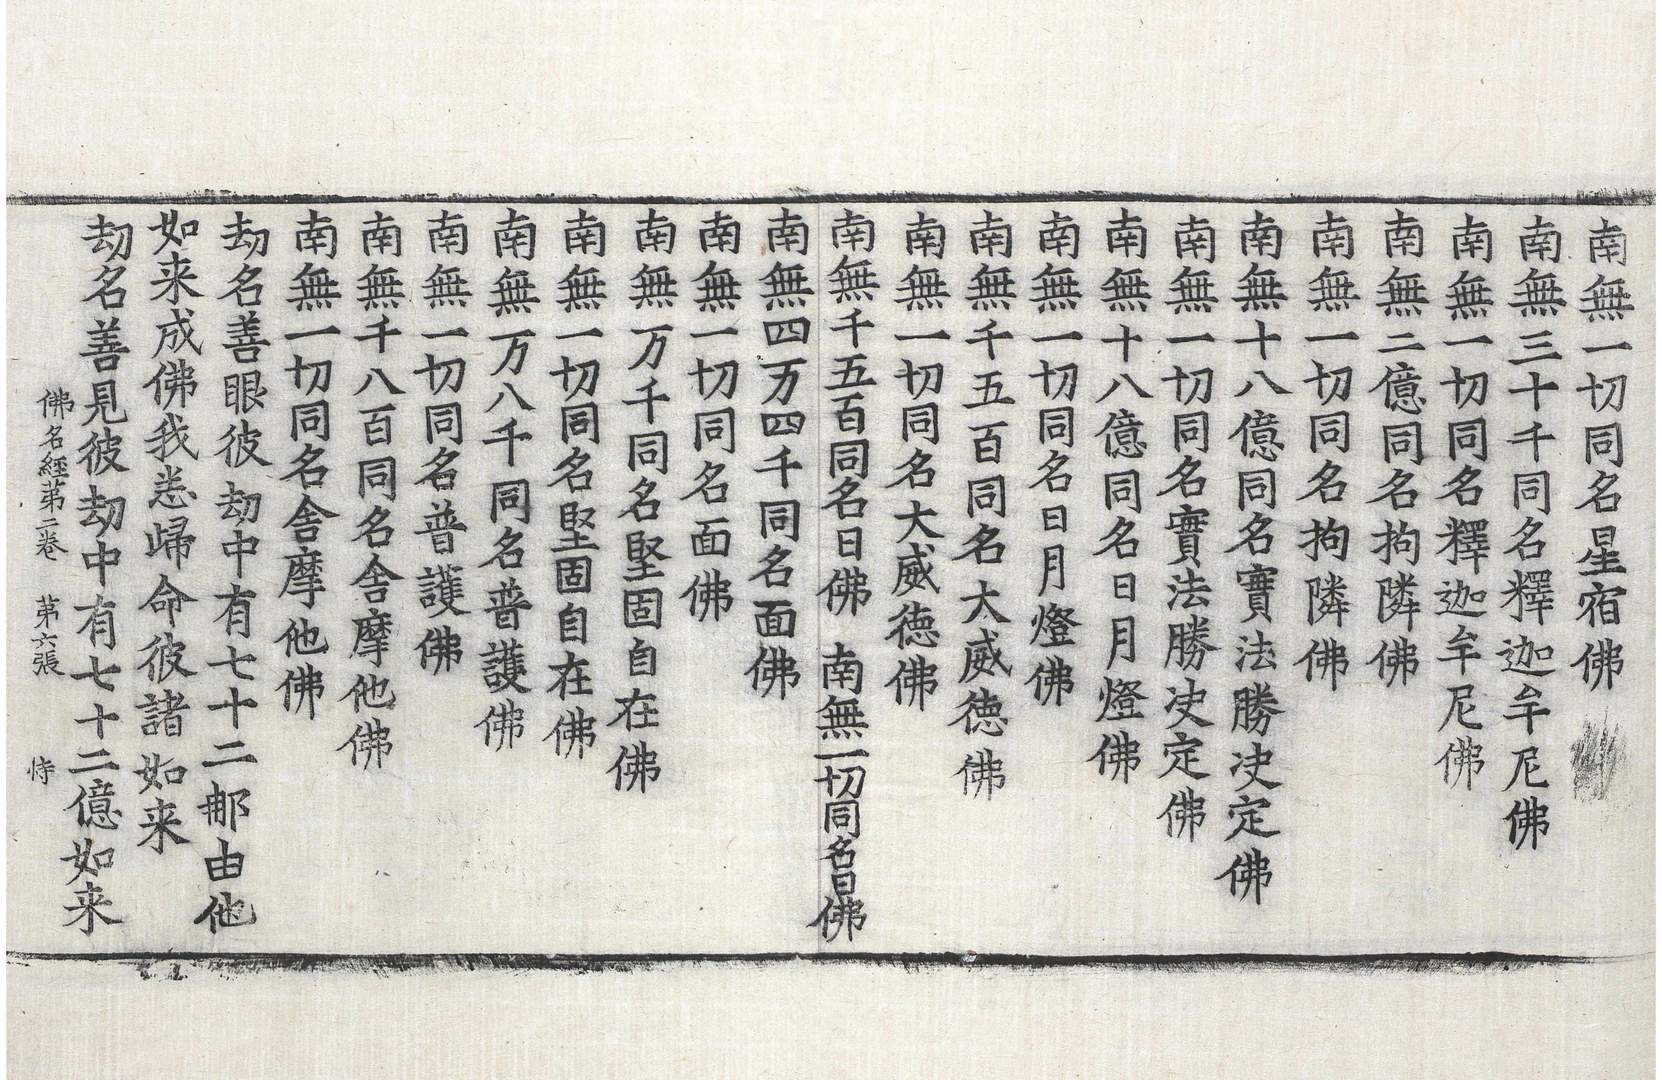 南無一切同名星宿佛
南無三十千同名釋迦牟尼佛
南無一切同名釋迦牟尼佛
南無二億同名拘隣佛
南無一切同名拘隣佛
南無十八億同名實法勝决定佛
南無一切同名實法勝决定佛
南無十八億同名日月燈佛
南無一切同名日月燈佛
南無千五百同名大威德佛
南無一切同名大威德佛
南無千五百同名日佛　南無一切同名日佛
南無四万四千同名面佛
南無一切同名面佛
南無万千同名堅固自在佛
南無一切同名堅固自在佛
南無万八千同名普護佛
南無一切同名普護佛
南無千八百同名舍摩他佛
南無一切同名舍摩他佛
劫名善眼彼劫中有七十二那由他
如来成佛我悉歸命彼諸如来
劫名善見彼劫中有七十二億如来
佛名經第二卷　第六張　恃